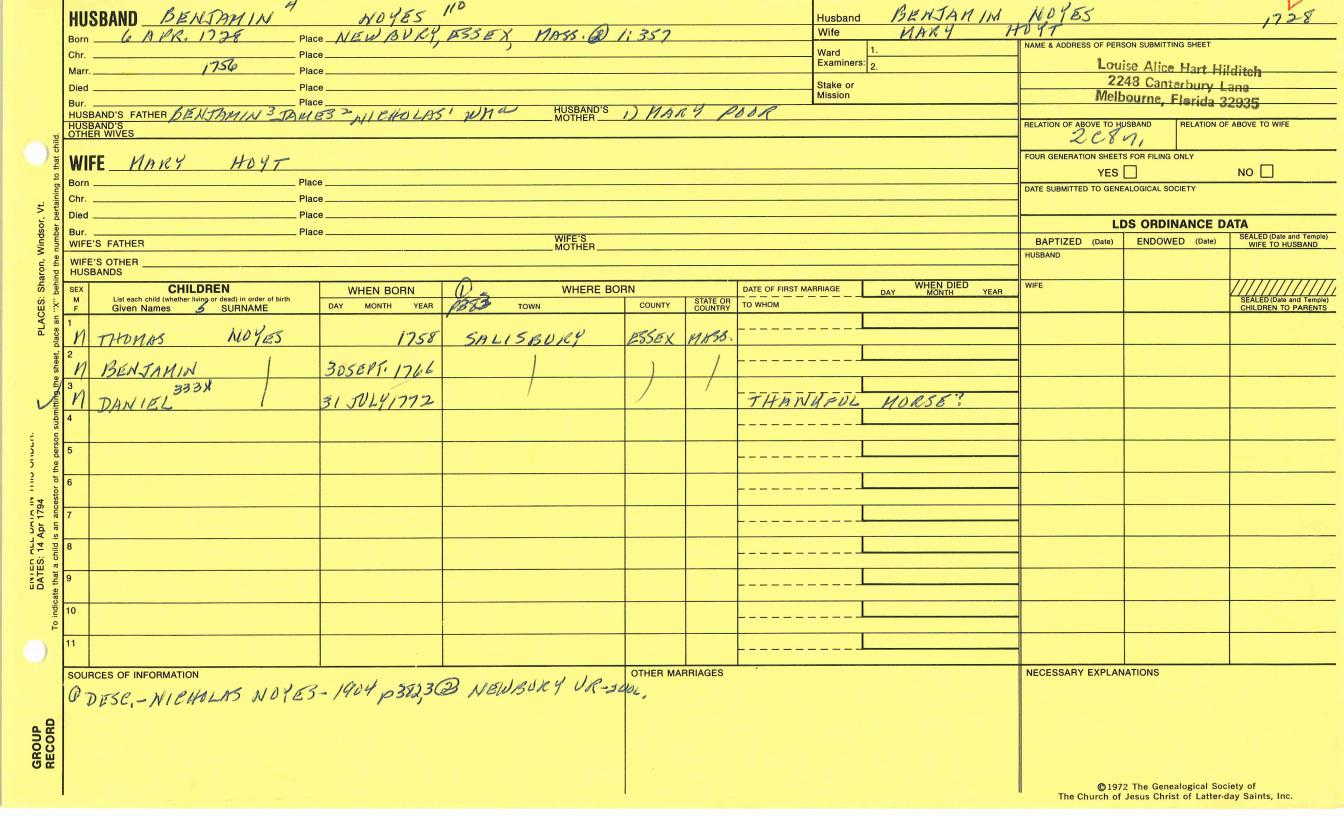 HUSBAND BENJAMIN 4 NOYES 110
Born 6 APR. 1728 Place NEWBURY, ESSEX, MASS. ② 1:357
Chr. Place
Marr. 1756 Place
Died Place
Bur. Place
HUSBAND'S FATHER BENJAMIN 3 JAMES 2 NICHOLAS 1 HUSBAND'S MOTHER 1) MARY POOR
HUSBAND'S OTHER WIVES
Husband BENJAMIN NOYES 1728
Wife MARY HOYT
Ward Examiners: 1.
2.
Stake or Mission
NAME & ADDRESS OF PERSON SUBMITTING SHEET
Louise Alice Hart Hilditch
2248 Canterbury Lane
Melbourne, Florida 32935
RELATION OF ABOVE TO HUSBAND RELATION OF ABOVE TO WIFE
2C8r,
FOUR GENERATION SHEETS FOR FILING ONLY
YES NO
DATE SUBMITTED TO GENEALOGICAL SOCIETY
WIFE MARY HOYT
Born Place
Chr. Place
Died Place
Bur. Place
WIFE'S FATHER WIFE'S MOTHER
WIFE'S OTHER HUSBANDS
LDS ORDINANCE DATA
BAPTIZED (Date) ENDOWED (Date) SEALED (Date and Temple) WIFE TO HUSBAND
HUSBAND
WIFE
SEALED (Date and Temple) CHILDREN TO PARENTS
SEX M F
CHILDREN
List each child (whether living or dead) in order of birth
Given Names SURNAME
WHEN BORN
DAY MONTH YEAR
① p382 WHERE BORN
TOWN COUNTY STATE OR COUNTRY
DATE OF FIRST MARRIAGE
TO WHOM
WHEN DIED
DAY MONTH YEAR
1 M THOMAS NOYES 1758 SALISBURY ESSEX MASS.
2 M BENJAMIN 30 SEPT. 1766
3 M DANIEL 333X 31 JULY 1772 THANKFUL MORSE?
4
5
6
7
8
9
10
11
SOURCES OF INFORMATION
① DESC.-NICHOLAS NOYES-1904 p382,3 ② NEWBURY VR-
OTHER MARRIAGES
NECESSARY EXPLANATIONS
©1972 The Genealogical Society of
The Church of Jesus Christ of Latter-day Saints, Inc.
PLACES: Sharon, Windsor, Vt.
ENTER ALL DATA IN THIS ORDER:
DATES: 14 Apr 1794
To indicate that a child is an ancestor of the person submitting the sheet, place an "X" behind the number pertaining to that child.
GROUP
RECORD